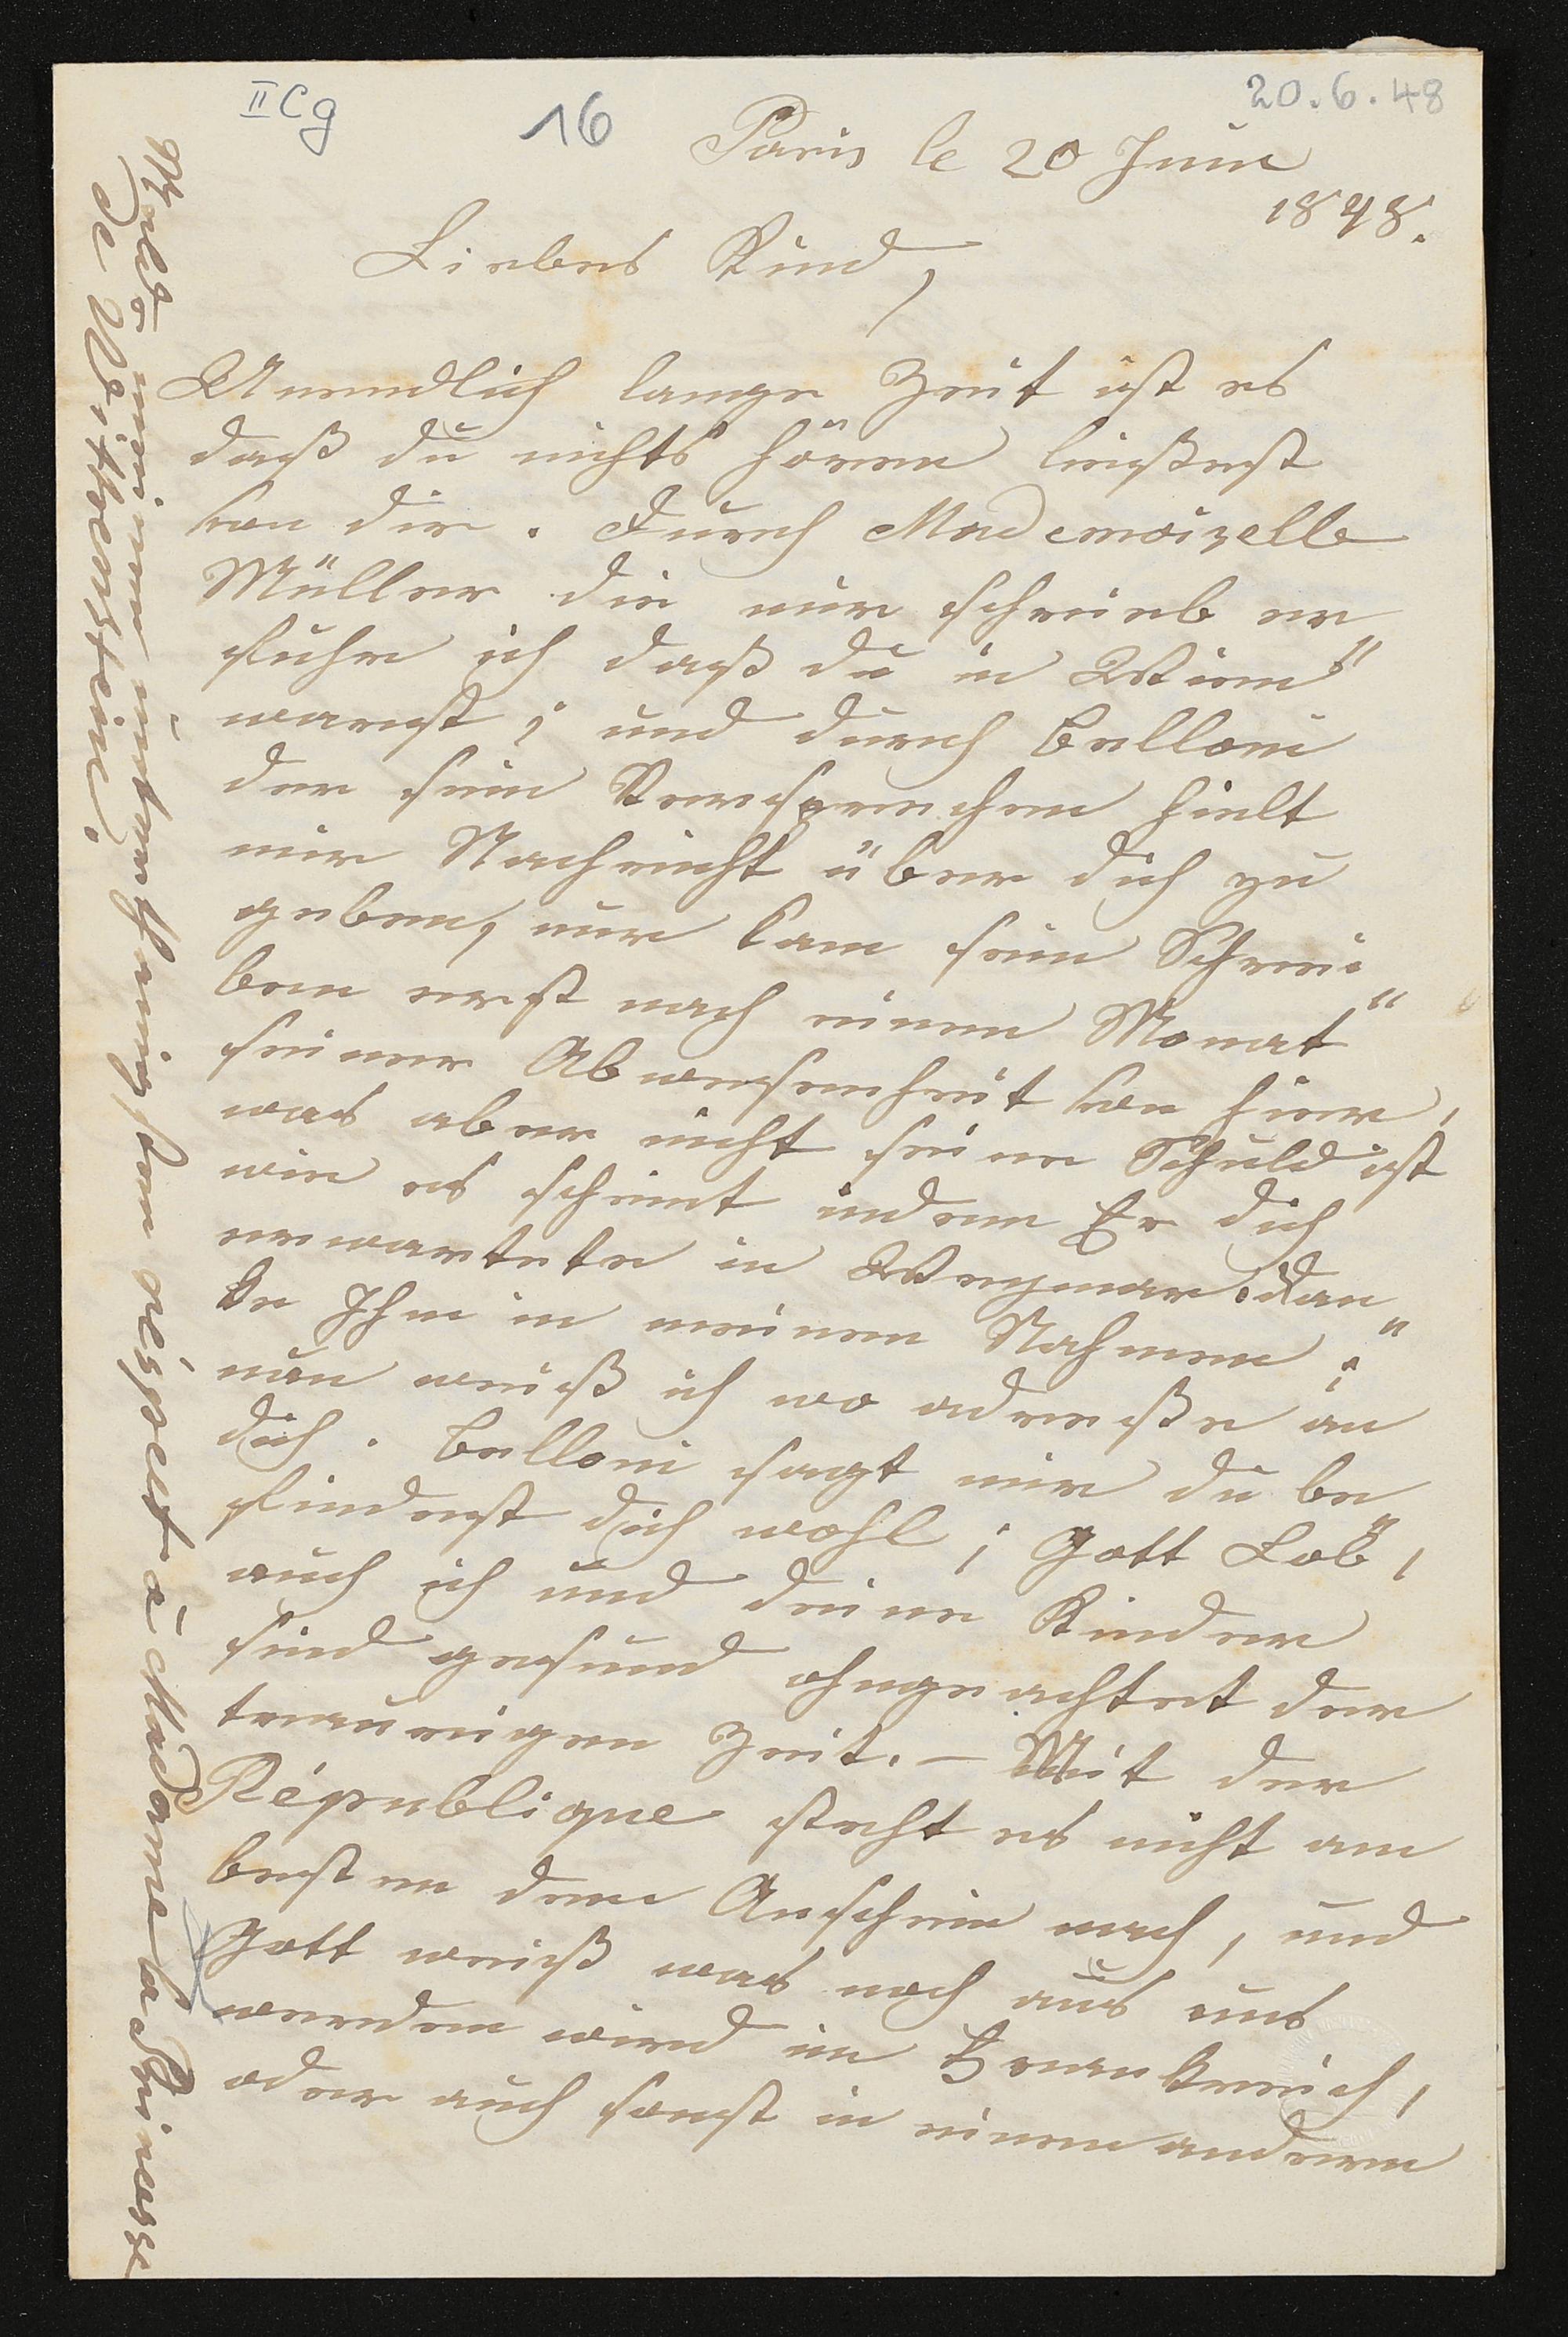 II Cg
16
20.6.48
Paris le 20 Juin
1848.
Liebes Kind,
Unendlich lange Zeit ist es
daß du nichts hören ließest
von dir. Durch Mademoiselle
Müller die mir schrieb er
fuhr ich daß du in Wien"
warest; und durch Belloni
der sein Versprechen hielt
mir Nachricht über dich zu
geben, nur kam sein Schrei"
ben erst nach einen Monat
seiner Abwesenheit von hier,
was aber nicht seine Schuld ist
wie es scheint indem Er dich
erwartete in Weymar. dan"
ke Ihm in meinem Nahmen;
nun weiß ich wo adreße an
dich. Belloni sagt mir du be"
findest dich wohl; Gott Lob,
auch ich und deine Kinder
sind gesund ohngeachtet der
traurigen Zeit. – Mit der
République steht es nicht am
besten dem Anschein nach, und
Gott weiß was noch aus uns
werden wird in Frankreich,
oder auch sonst in einem andern
Meld meinen unterthänigsten réspect à Madame la Princesse
de Wittgenstein.